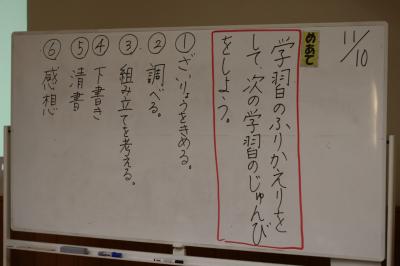 11/10
めあて
学習のふりかえりを
して、次の学習のじゅんび
をしよう。
①ざいりょうをきめる。
②調べる。
③組み立てを考える。
④下書き
⑤清書
⑥感想